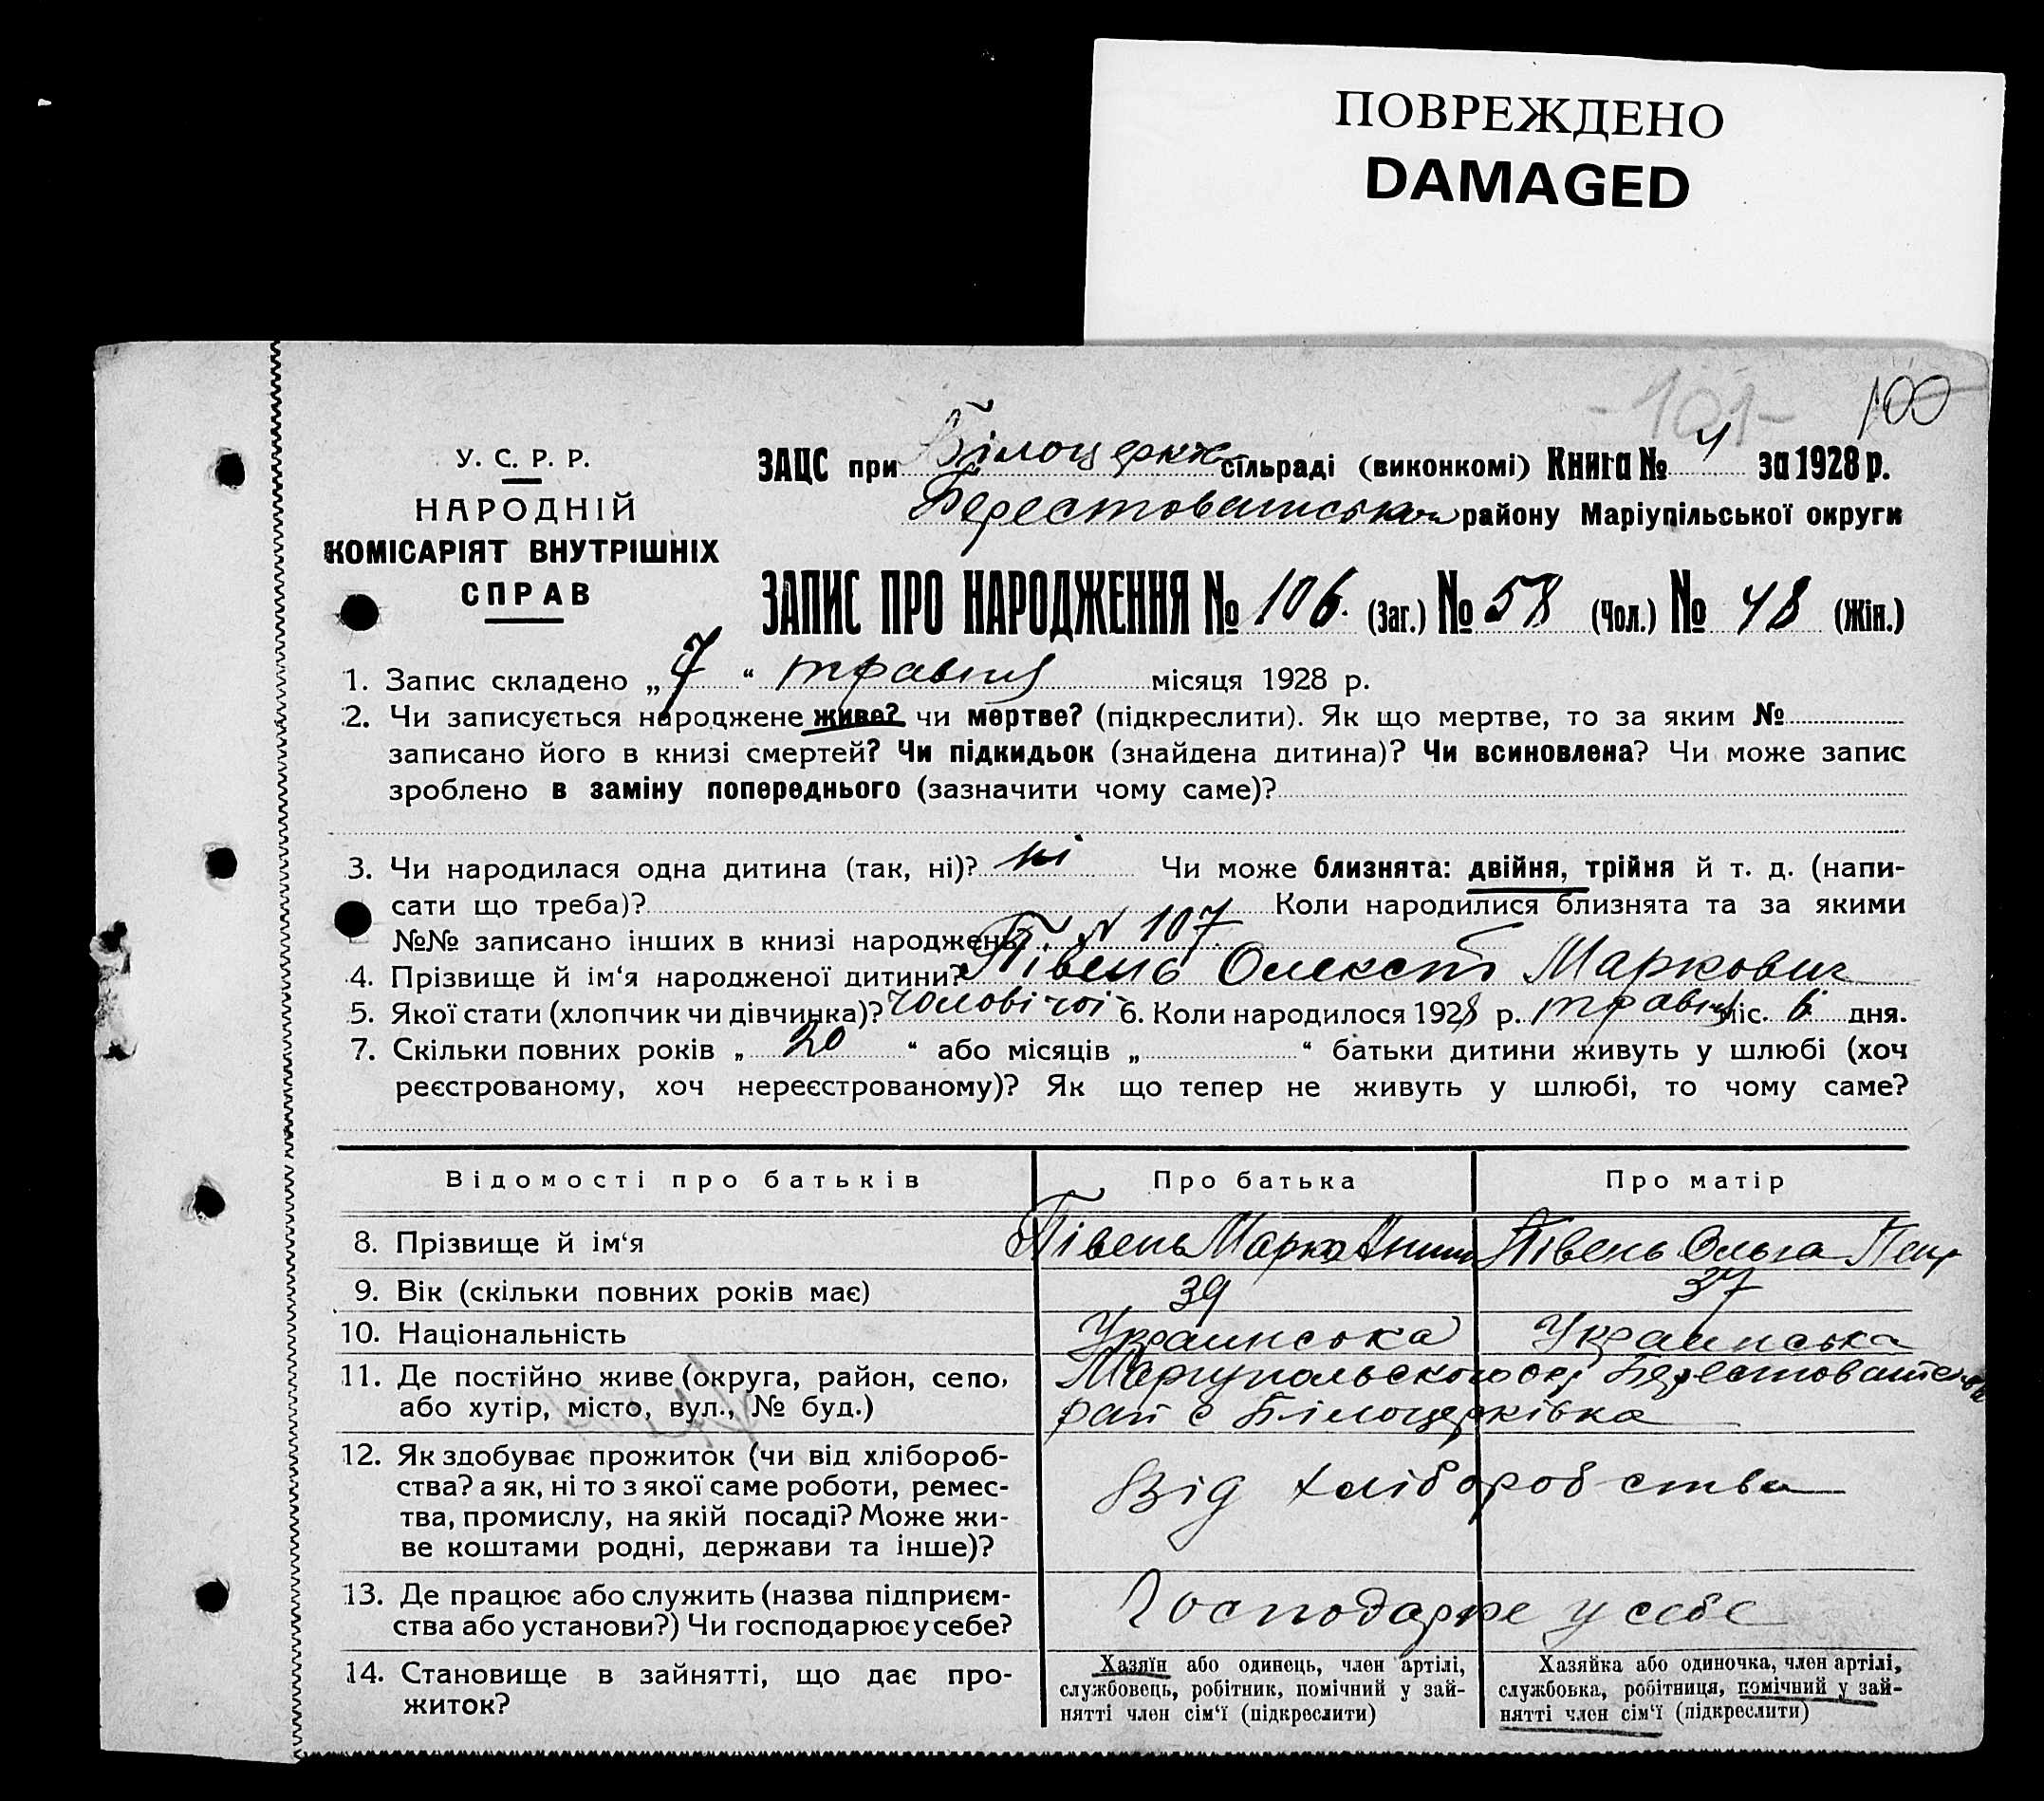 ПОВРЕЖДЕНО
DAMAGED
-101- 100
У. С. Р. Р.
НАРОДНІЙ
КОМІСАРІЯТ ВНУТРІШНІХ
СПРАВ
ЗАЦС при Білоцеркк сільраді (виконкомі) Книга № 1 за 1928 р.
району Маріупільської округи
ЗАПИС ПРО НАРОДЖЕННЯ № 106. (Заг.) № 58 (Чол.) № 48 (Жін.)
1. Запис складено „ 7 “ травня місяця 1928 р.
2. Чи записується народжене живе? чи мертве? (підкреслити). Як що мертве, то за яким №
записано його в книзі смертей? Чи підкидьок (знайдена дитина)? Чи всиновлена? Чи може запис
зроблено в заміну попереднього (зазначити чому саме)?
3. Чи народилася одна дитина (так, ні)? ні Чи може близнята: двійня, трійня й т. д. (напи-
сати що треба)? Коли народилися близнята та за якими
№№ записано інших в книзі народжень. N 107.
4. Прізвище й ім‘я народженої дитини? Півень Олексій Маркович
5. Якої стати (хлопчик чи дівчинка)? чоловічої 6. Коли народилося 1928 р. травня міс. 6 дня.
7. Скільки повних років „ 20 “ або місяців „ “ батьки дитини живуть у шлюбі (хоч
реєстрованому, хоч нереєстрованому)? Як що тепер не живуть у шлюбі, то чому саме?
Відомості про батьків Про батька Про матір
8. Прізвище й ім‘я Півень Марко Півень Ольга Петр
9. Вік (скільки повних років має) 39 37
10. Національність Украинська Украинська
11. Де постійно живе (округа, район, село, Мариупольского окр Берестоватськ
або хутір, місто, вул., № буд.) рай с Білоцерківка
12. Як здобуває прожиток (чи від хлібороб-
ства? а як, ні то з якої саме роботи, ремес- Від хліборобства
тва, промислу, на якій посаді? Може жи-
ве коштами родні, держави та інше)?
13. Де працює або служить (назва підприєм- Господарює у себе
ства або установи?) Чи господарює у себе?
14. Становище в зайнятті, що дає про-
житок?
Хазяїн або одинець, член артілі,
службовець, робітник, помічний у зай-
нятті член сім‘ї (підкреслити)
Хазяйка або одиночка, член артілі,
службовка, робітниця, помічний у зай-
нятті член сім‘ї (підкреслити)